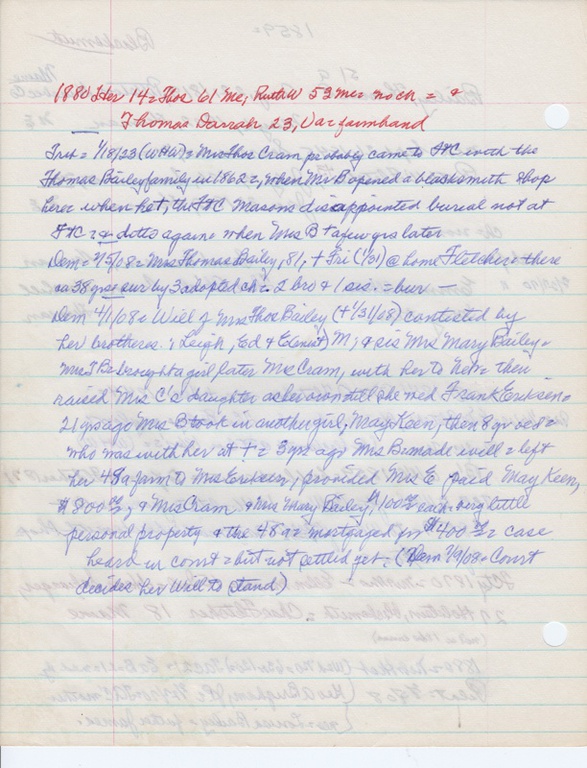 1880 Her 14 = Thos 61 Me; Ruth W 53 me = no ch = &
Thomas Darrah 23, Va = farmhand
Trib = 1/18/23 (WHW) = Mrs Thos Cram probably came to FtC with the
Thomas Bailey family in 1862 =, when Mr B opened a blacksmith shop
here = when he t, the FtC Masons disappointed burial not at
FtC = & ditto again = when Mrs B t a few yrs later
Dem = 2/5/08 = Mrs Thomas Bailey, 81, t Fri (1/31) @ home Fletcher = there
ca 38 yrs = sur by 3 adopted ch = 2 bro & 1 sis. = bur —
Dem 4/1/08 = Will of Mrs Thos Bailey (t 1/31/08) contested by
her brothers = Leigh, Ed & M; & sis Mrs Mary Bailey =
Mrs T B = brought a girl later Mrs Cram, with her to = then
raised Mrs C's daughter as her own till she md Frank Eriksen =
21 yrs ago Mrs B took in another girl, May Keen, then 8 yr old =
who was with her at t = 3 yrs ago Mrs B = made will = left
her 48 a farm to Mrs Eriksen, provided Mrs E. paid May Keen,
$800 =; & Mrs Cram & Mrs Mary Bailey, $100 each = very little
personal property & the 48 a = mortgaged for $400 = case
heard in court = but not settled yet = (Dem 7/9/08 = Court
decides her Will to stand)